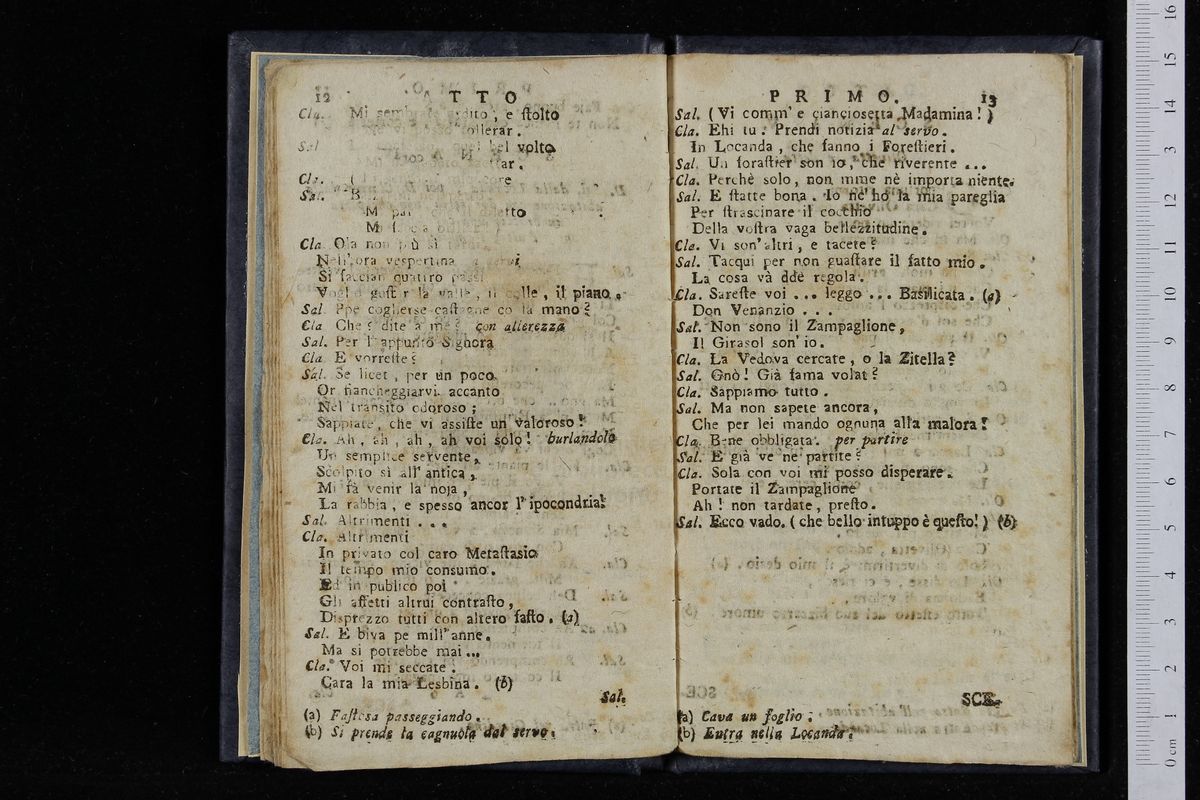 12 ATTO
Cla. Mi , e ſtolto
tollerar.
Sal bel volto
far.
Cla.
Sal.
Cla Olà non più sì
Nell'ora vespertina
Si faccian quattro paſſi
Voglio guſtar la valle, il colle, il piano.
Sal. Ppe coglierse caſtagne co la mano?
Cla Che? dite a me? con alterezza
Sal. Per l'appunto Signora
Cla E vorreſte?
Sal. Se licet, per un poco
Or fiancheggiarvi accanto
Nel transito odoroso;
Sappiate, che vi aſſiſte un valoroso!
Cla. Ah, ah, ah, ah voi solo! burlandolo
Un semplice servente,
Scolpito sì all'antica,
Mi fà venir la noja,
La rabbia, e spesso ancor l'ipocondria!
Sal. Altrimenti . . .
Cla. Altrimenti
In privato col caro Metaſtasio
Il tempo mio consumo.
Ed in publico poi
Gli affetti altrui contraſto,
Disprezzo tutti con altero faſto. (a)
Sal. E biva pe mill'anne.
Ma si potrebbe mai...
Cla. Voi mi seccate.
Cara la mia Lesbina. (b)
Sal.
(a) Faſtosa passeggiando.
(b) Si prende la cagnuola dal servo.
PRIMO. 13
Sal. (Vi comm' e cianciosetta Madamina!)
Cla. Ehi tu. Prendi notizia al servo.
In Locanda, che fanno i Foreſtieri.
Sal. Un foraſtier son io, che riverente ...
Cla. Perchè solo, non mme nè importa niente.
Sal. E ſtatte bona. Io nè hò la mia pareglia
Per ſtrascinare il cocchio
Della voſtra vaga bellezzitudine.
Cla. Vi son'altri, e tacete?
Sal. Tacqui per non guaſtare il fatto mio.
La cosa và dde regola.
Cla. Sareſte voi ... leggo ... Basilicata. (a)
Don Venanzio . . .
Sal. Non sono il Zampaglione,
Il Girasol son'io.
Cla. La Vedova cercate, o la Zitella?
Sal. Gnò! Già fama volat?
Cla. Sappiamo tutto.
Sal. Ma non sapete ancora,
Che per lei mando ognuna alla malora!
Cla. Bene obbligata. per partire
Sal. E già ve ne partite?
Cla. Sola con voi mi posso disperare.
Portate il Zampaglione
Ah! non tardate, preſto.
Sal. Ecco vado. (che bello intuppo è queſto!) (b)
SCE-
(a) Cava un foglio.
(b) Entra nella Locanda.